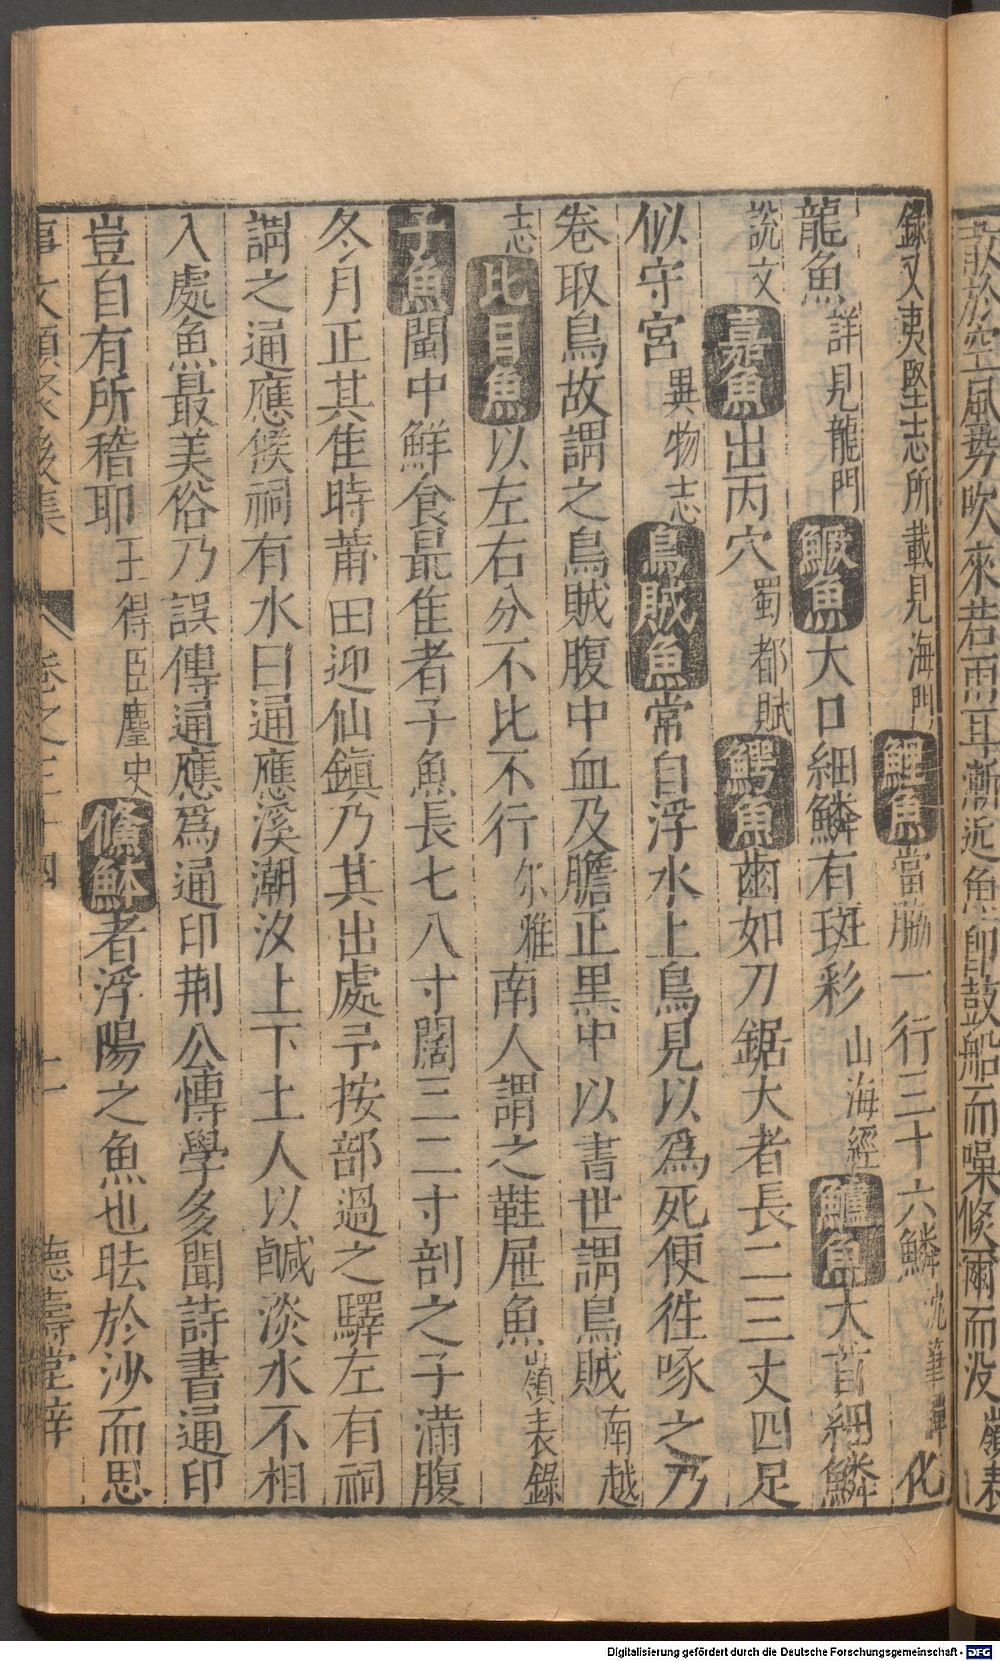 敲於空風勢吹來若雨耳漸近魚即鼓船而噪倏爾而没嶺表
錄又夷堅志所載見海門鯉魚當脇一行三十六鱗沈筆譚化
龍魚詳見龍門鱖魚大口細鱗有斑彩山海經鱸魚大首細鱗
說文嘉魚出丙穴蜀都賦鰐魚齒如刀鋸大者長二三丈四足
似守宮異物志烏賊魚常自浮水上烏見以爲死便徃啄之乃
卷取烏故謂之烏賊腹中血及膽正黒中以書世謂烏賊南越
志比目魚以左右分不比不行尔雅南人謂之鞋屉魚嶺表錄
子魚閩中鮮食最隹者子魚長七八寸闊三二寸剖之子滿腹
冬月正其隹時莆田迎仙鎮乃其出處予按部過之驛左有祠
謂之通應候祠有水曰通應溪潮汐上下土人以鹹淡水不相
入處魚最美俗乃誤傳通應爲通印荆公愽學多聞詩書通印
豈自有所稽耶王得臣麈史鯈䱁者浮陽之魚也胠於沙而思
事文類聚後集 卷之三十四 十一 德壽堂梓
Digitalisierung gefördert durch die Deutsche Forschungsgemeinschaft - DFG